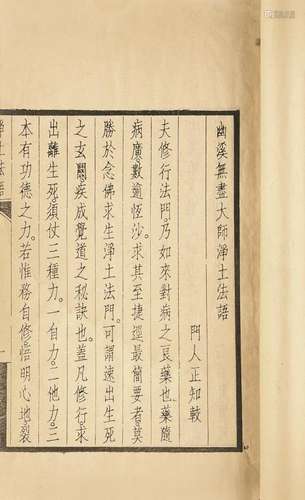 幽溪無盡大師淨土法語
門人正知較
夫修行法門。乃如來對病之良藥也。藥隨
病廣。數逾恆沙。求其至捷徑最簡要者。莫
勝於念佛求生淨土法門。可謂速出生死
之玄關。疾成覺道之秘訣也。蓋凡修行。求
出離生死。須仗三種力。一自力。二他力。三
本有功德之力。若惟務自修。悟明心地。裂
淨土法語
一